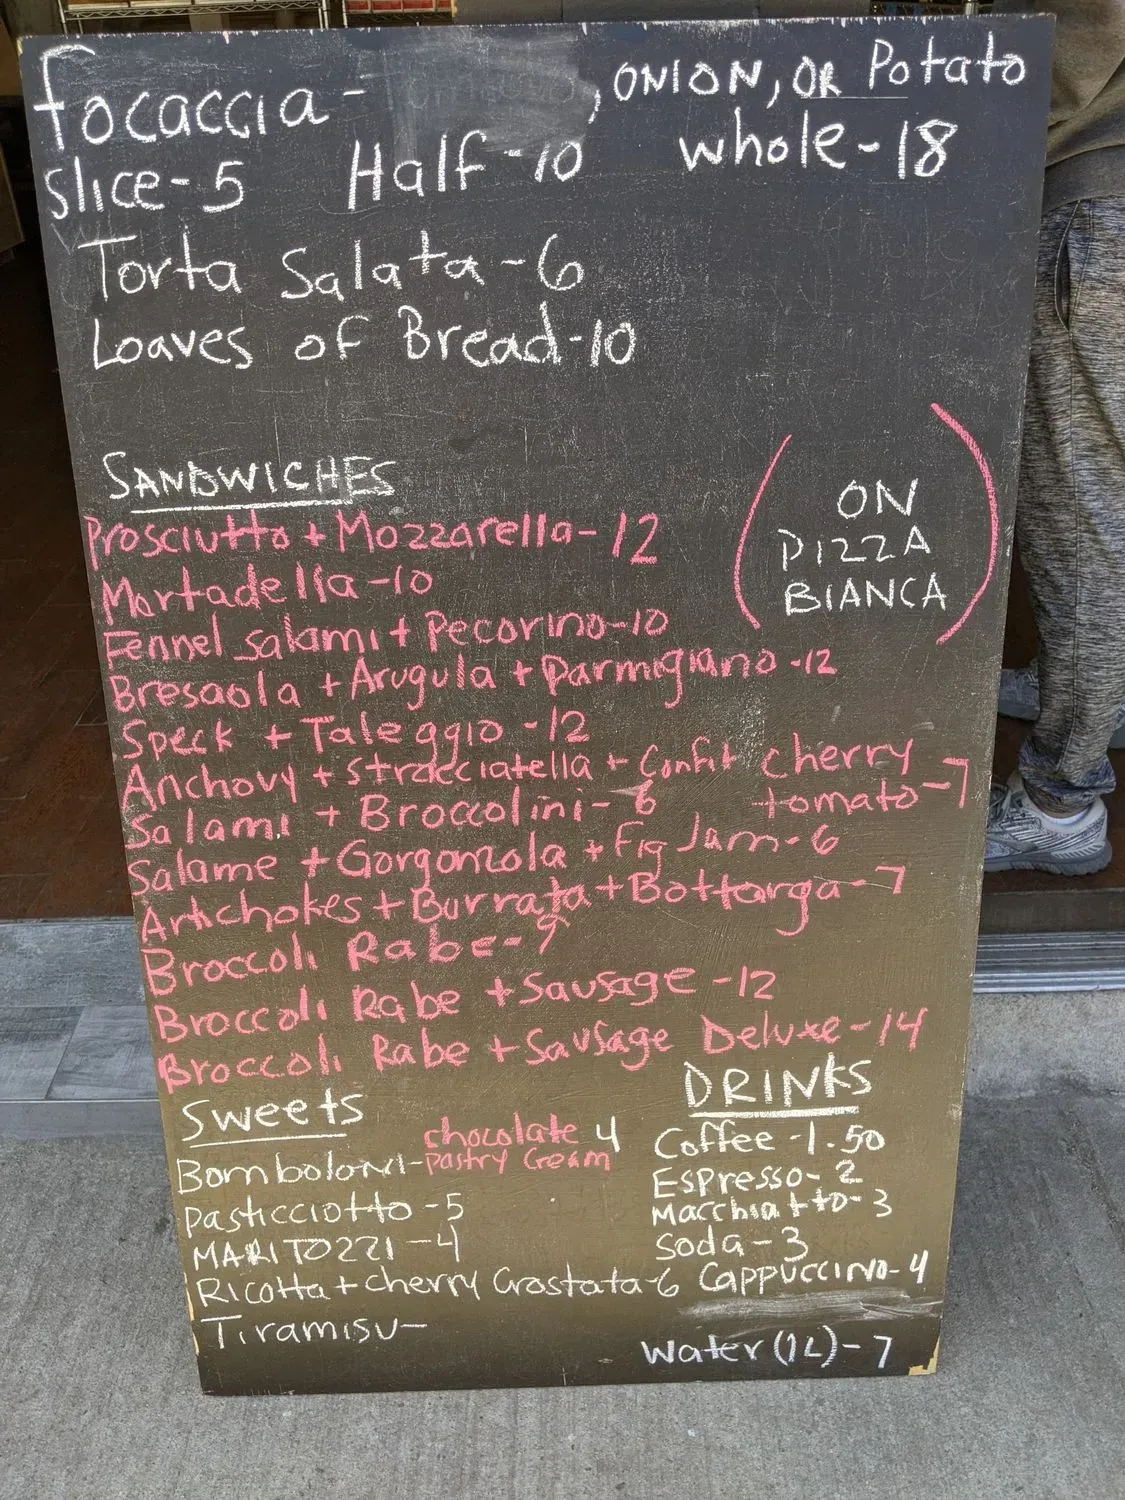 focaccia- , ONION, OR Potato
slice-5 Half-10 whole-18
Torta Salata-6
Loaves of Bread-10
SANDWICHES
ON
PIZZA
BIANCA
Prosciutto + Mozzarella-12
Mortadella-10
Fennel salami + Pecorino-10
Bresaola + Arugula + Parmigiano-12
Speck + Taleggio-12
Anchovy + Stracciatella + Confit cherry
tomato-7
Salami + Broccolini-6
Salame + Gorgonzola + Fig Jam-6
Artichokes + Burrata + Bottarga-7
Broccoli Rabe-9
Broccoli Rabe + Sausage-12
Broccoli Rabe + Sausage Deluxe-14
Sweets
Bomboloni-chocolate 4
pastry cream
Pasticciotto-5
MARITOZZI-4
Ricotta + cherry Crostata-6
Tiramisu-
DRINKS
Coffee-1.50
Espresso-2
Macchiatto-3
Soda-3
Cappuccino-4
Water (1L)-7